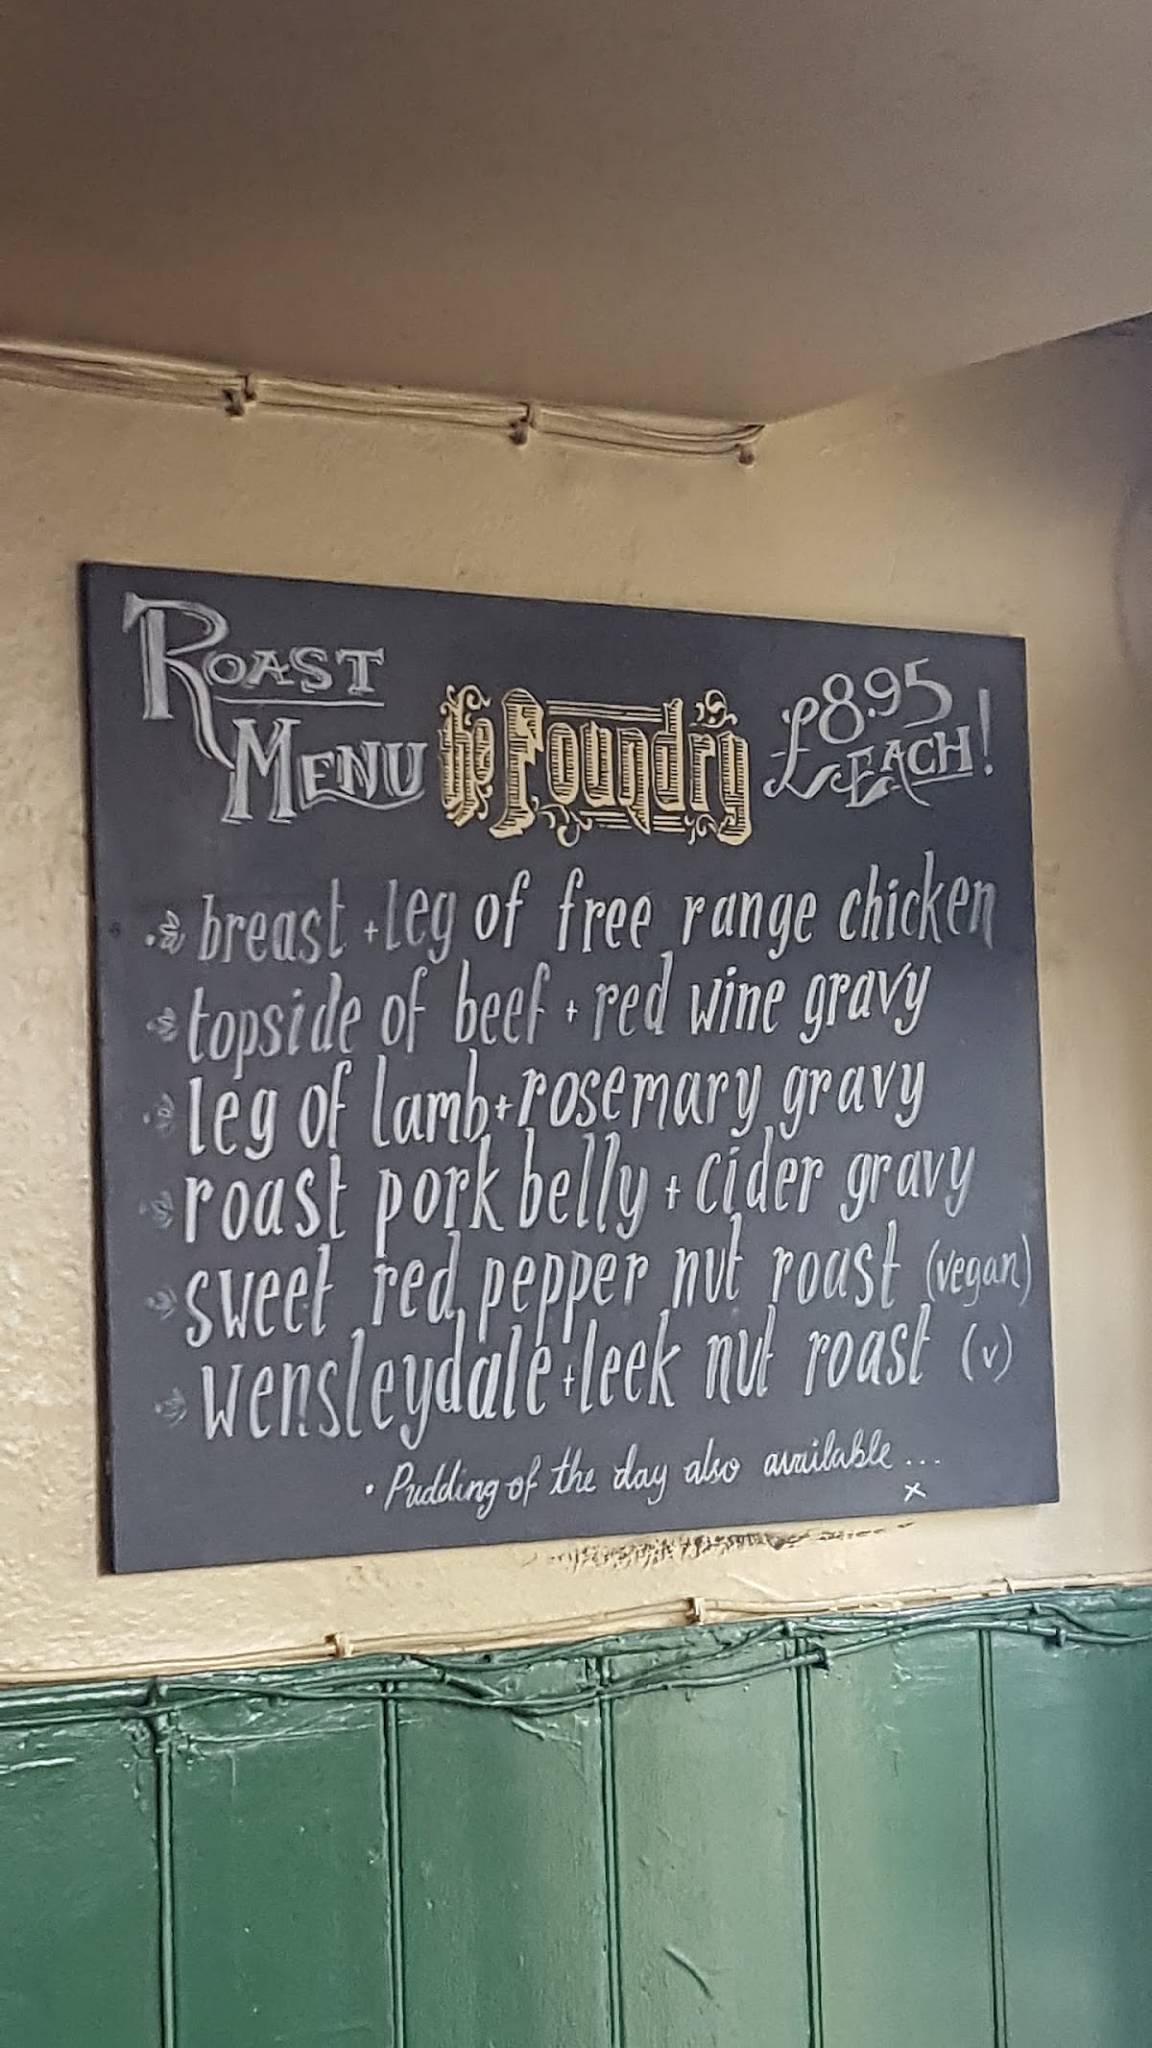 ROAST
MENU
the Foundry
£8.95
EACH!
breast + leg of free range chicken
topside of beef + red wine gravy
leg of lamb + rosemary gravy
roast pork belly + cider gravy
sweet red pepper nut roast (vegan)
wensleydale + leek nut roast (v)
• Pudding of the day also available...
x